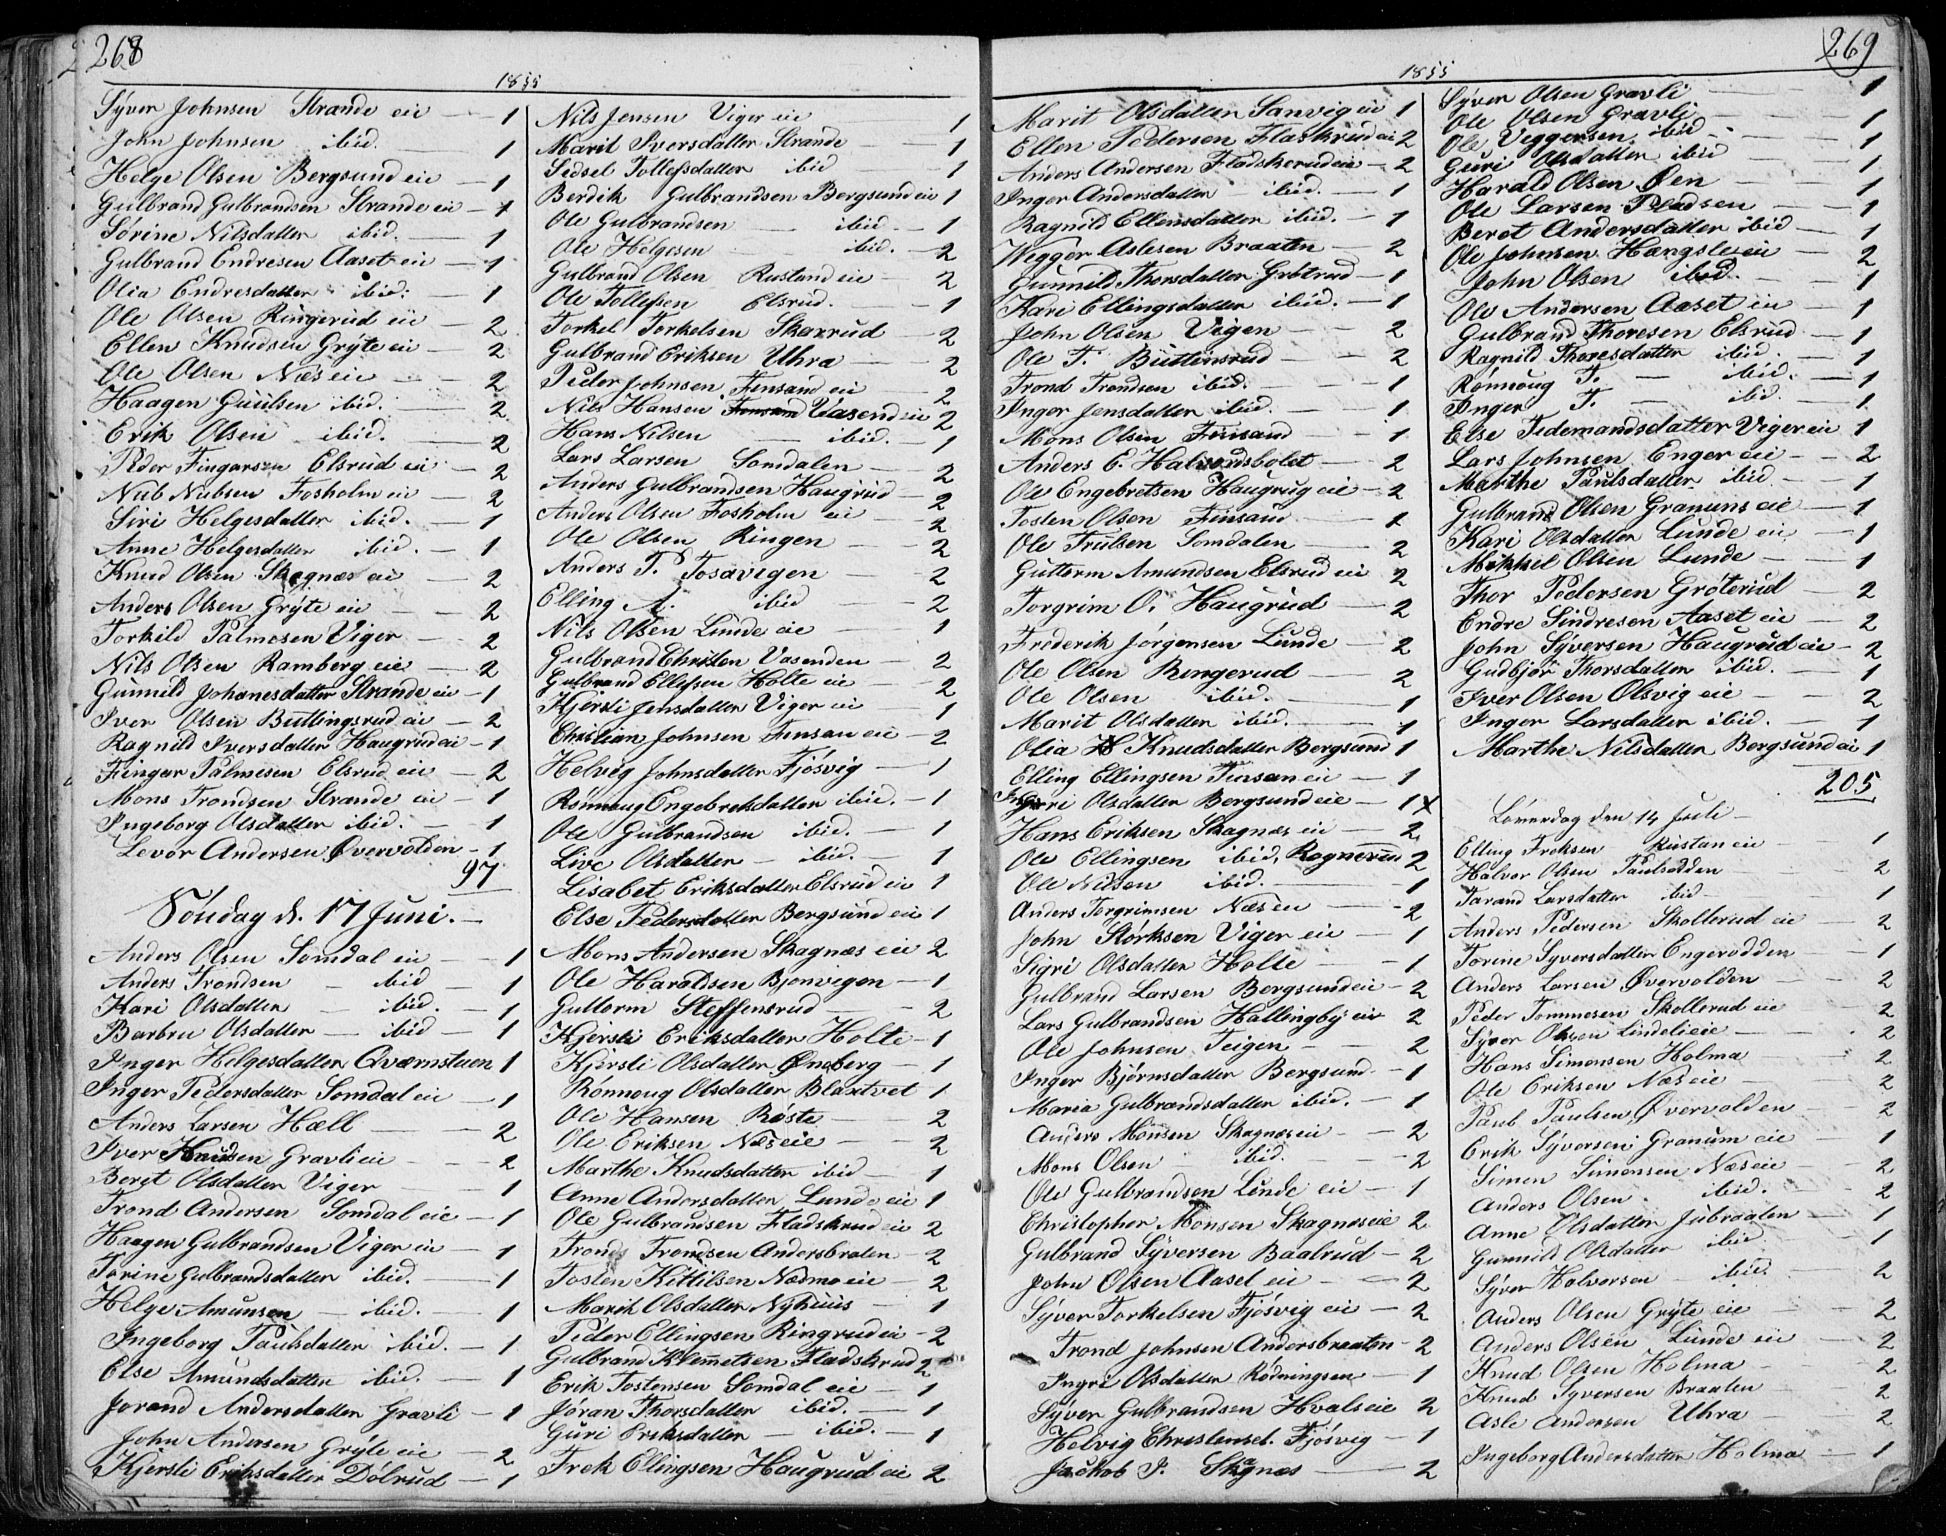 268
1855
Sÿver Johnsen Strande eie — 1
John Johnsen ibid. 1
Helge Olsen Bergsund eie — 1
Gulbrand Gulbrandsen Strande eie — 1
Sørine Nilsdatter ibid. — 1
Gulbrand Endresen Aaset eie — 1
Olia Endresdatter ibid: — 1
Ole Olsen Ringerud eie — 2
Ellen Knudsen Grÿte eie — 2
Ole Olsen Næs eie — 2
Haagen Guulsen ibid. — 2
Erik Olsen ibid. — 2
Peder Fingarsen Elsrud eie — 2
Nub Nubsen Fosholm eie — 2
Siri Helgesdatter ibid. — 1
Anne Helgesdatter ibid. — 1
Knud Olsen Skagnæs eie — 2
Anders Olsen Grÿte eie — 2
Torkild Palmesen Viger — 2
Nils Olsen Ramberg eie — 2
Gunnild Johanesdatter Strande eie — 1
Iver Olsen Butlingsrud eie — 2
Ragnild Iversdatter Haugrud eie — 1
Fingar Palmesen Elsrud eie — 2
Mons Trondsen Strande eie — 1
Ingeborg Olsdatter ibid. — 1
Levor Andersen Øvervolden — 1
97
Sönday d. 17 Juni. —
Anders Olsen Somdal eie — 1
Anders Trondsen — ibid — 1
Kari Olsdatter — ibid. — 1
Barbru Olsdatter — ibid — 1
Inger Helgesdatter Qværnstuen 1
Inger Pedersdatter Somdal eie — 1
Anders Larsen Hæll — 2
Iver Knudsen Gravli eie — 2
Beret Olsdatter Viger — 1
Trond Andersen Somdal eie — 1
Haagen Gulbrandsen Viger eie — 1
Torine Gulbrandsdatter ibid. — 1
Helge Amunsen — ibid. — 1
Ingeborg Paulsdatter ibid. — 1
Else Amundsdatter ibid. — 1
Jorand Andersdatter Gravli — 1
John Andersen Grÿte eie — 2
Kjersti Eriksdatter Dølrud — 1
Nils Jensen Viger eie 1
Marit Iversdatter Strande — 1
Sidsel Tollefsdatter ibid — 1
Berdik Gulbrandsen Bergsund eie 1
Ole Gulbrandsen — ibid. — 1
Ole Helgesen — ibid. — 2
Gulbrand Olsen Rustand eie — 2
Ole Tollefsen Elsrud. — 1
Torkel Torkelsen Skarrud — 2
Gulbrand Eriksen Uhra — 2
Peder Johnsen Finsand eie — 2
Nils Hansen Finsand Vasend eie 2
Hans Nilsen — ibid. 1
Lars Larsen Somdalen — 2
Anders Gulbrandsen Haugrud 2
Anders Olsen Fosholm eie — 2
Ole Olsen Ringen 2
Anders T. Tosavigen — 2
Elling A. ibid — 2
Nils Olsen Lunde eie — 1
Gulbrand Christen Vasenden — 2
Gulbrand Ellefsen Holte eie — 2
Kjersti Jensdatter Viger eie 1
Christian Johnsen Finsan eie — 2
Helvig Johnsdatter Fjösvig — 1
Rønnoug Engebretsdatter ibid. — 1
Ole Gulbrandsen ibid. — 1
Live Olsdatter — ibid. — 1
Lisabet Eriksdatter Elsrud eie 1
Else Pedersdatter Bergsund eie 1
Mons Andersen Skagnæs eie 2
Ole Haraldsen Bjonvigen — 1
Guttorm Steffensrud — 2
Kjersti Eriksdatter Holte — 1
Kjersti Olsdatter Øneberg — 1
Rønnoug Olsdatter Blaxtvet 1
Ole Hansen Røste — 2
Ole Eriksen Næs eie — 2
Marthe Knudsdatter ibid — 1
Anne Andersdatter Lunde eie 1
Ole Gulbrandsen Fladskrud eie 2
Trond Trondsen Andersbraten — 2
Tosten Kittilsen Nædmo eie — 2
Marit Olsdatter Nyhuus — 1
Peder Ellingsen Ringrud eie — 2
Gulbrand Klemetsen Fladskrud 2
Erik Tostensen Somdal eie — 1
Jöran Thorsdatter ibid. — 1
Guri Eriksdatter — ibid. — 1
Frek Ellingsen Haugrud eie 2
269
1855
Marit Olsdatter Sanvig eie 1
Ellen Pedersen Flaskrud eie 2
Anders Andersen Fladskerud eie — 2
Inger Andersdatter ibid. — 1
Ragnild Ellensdatter ibid. — 1
Wegger Aslesen Braaten — 2
Gunnild Thorsdatter Grötrud — 1
Kari Ellingsdatter ibid. — 1
John Olsen Vigen — 2
Ole T. Butlinsrud — 2
Trond Trondsen ibid. — 1
Inger Jensdatter ibid. — 1
Mons Olsen Finsand — 1
Anders E. Halvordsbolet — 2
Ole Engebretsen Haugrug eie — 2
Tosten Olsen Finsand — 1
Ole Trulsen Somdalen — 2
Guttorm Amundsen Elsrud eie 2
Torgrim O. Haugrud — 2
Frederik Jörgensen Lunde — 2
Ole Olsen Ringerud — 2
Ole Olsen ibid. — 1
Marit Olsdatter ibid. — 1
Olia Knudsdatter Bergsund 1
Elling Ellingsen Finsan eie — 1
Ingri Olsdatter Bergsund eie — 1 x
Hans Eriksen Skagnæs eie — 2
Ole Ellingsen ibid. Rognerud 2
Ole Nilsen ibid. — 1
Anders Torgrimsen Næs eie — 2
John Størksen Viger eie — 1
Sigri Olsdatter Holte — 1
Gulbrand Larsen Bergsund eie — 2
Lars Gulbrandsen Hallingbÿ eie 2
Ole Johnsen Teigen — 2
Inger Bjørnsdatter Bergsund — 1
Maria Gulbrandsdatter ibid. — 1
Anders Monsen Skagnæs eie — 2
Mons Olsen ibid. — 2
Ole Gulbrandsen Lunde eie — 1
Christopher Monsen Skagnæs eie 2
Gulbrand Sÿversen Baalrud — 2
John Olsen Aaset eie — 2
Sÿver Torkelsen Fjösvig eie — 2
Trond Johnsen Andersbraaten — 2
Ingri Olsdatter Rödningsen — 1
Sÿver Gulbrandsen Hvals eie 2
Helvig Christensd. Fjösvig — 1
Jackob P. Skagnæs — 2
Sÿver Olsen Gravli — 1
Ole Olsen Gravli — 1
Ole Veggersen ibid — 1
Guri Olsdatter ibid — 1
Harald Olsen Øen — 1
Ole Larsen Pladsen — 1
Beret Andersdatter ibid — 1
Ole Johnsen Hængsle eie — 2
John Olsen ibid. — 1
Ole Andersen Aaset eie — 1
Gulbrand Thoresen Elsrud — 1
Ragnild Thoresdatter ibid. — 1
Rønnoug T. — ibid. — 1
Inger T. — ibd. — 1
Else Tidemandsdatter Viger eie 1
Lars Johnsen Enger eie — 2
Marthe Paulsdatter ibid. — 1
Gulbrand Olsen Granuns eie — 1
Kari Olsdatter Lunde eie — 1
Mikkel Olsen Lunde — 1
Thor Pedersen Gröterud — 2
Endre Sindresen Aaset eie — 2
John Sÿversen Haugrud eie — 2
Gudbjör Thorsdatter ibid. — 1
Iver Olsen Olsvig eie — 2
Inger Larsdatter ibid. — 1
Marthe Nilsdatter Bergsund eie 1
205
Løverdag den 14 Juli —
Elling Freksen Rustan eie — 1
Halvor Olsen Paulsødden — 2
Tarand Larsdatter ibid — 1
Anders Pedersen Skollerud eie 2
Torine Syversdatter Engerodden — 1
Anders Larsen Øvervolden — 2
Peder Tommesen Skollerud eie 2
Sÿver Olsen Lindeli eie — 2
Hans Simensen Holma — 2
Ole Eriksen Næs eie — 2
Paul Paulsen Øvervolden — 2
Erik Sÿversen Granum eie — 1
Simen Simensen Næs eie — 2
Anders Olsen ibid. — 2
Anne Olsdatter Jubraaten — 1
Gunnild Olsdatter ibid — 1
Sÿver Halvorsen — ibid. 2
Anders Olsen Grÿte eie — 2
Anders Olsen Lunde eie — 2
Knud Olsen Holma — 2
Knud Syversen Braaten — 2
Asle Andersen Uhra — 2
Ingeborg Andersdatter Holma — 1